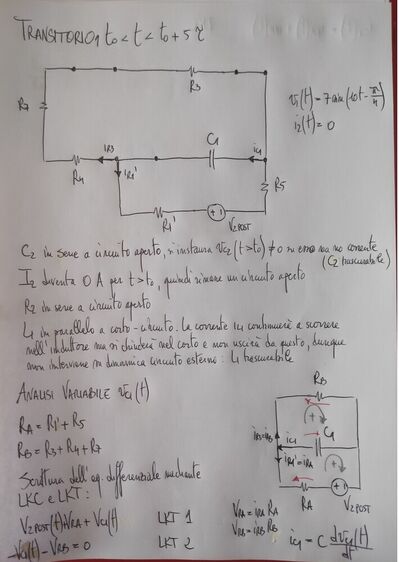 TRANSITORIO, t0 < t < t0 + 5τ
R3
v1(t) = 7 sin(10t - π/4)
i2(t) = 0
R7
C1
iR3
iR1'
ic1
R4
R5
R1'
V2POST
C2 in serie a circuito aperto, si instaura vC2(t>t0) ≠ 0 su esso ma no corrente
(C2 trascurabile)
I2 diventa 0 A per t > t0, quindi rimane un circuito aperto
R2 in serie a circuito aperto
L1 in parallelo a corto-circuito. La corrente iL1 continuerà a scorrere
nell'induttore ma si chiuderà nel corto e non uscirà da questo, dunque
non interviene in dinamica circuito esterno: L1 trascurabile
ANALISI VARIABILE vC1(t)
RA = R1' + R5
RB = R3 + R4 + R7
Scrittura dell'eq. differenziale mediante
LKC e LKT:
V2POST(t) + VRA + VC1(t) LKT 1
-VC1(t) - VRB = 0 LKT 2
RB
C1
iR3 = iRB
ic1
iR1' = iRA
RA
V2POST
VRA = iRA RA
VRB = iRB RB
ic1 = C dvC1(t)/dt